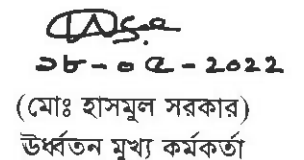 ১৮-০৫-2022
(মোঃ হাসমুল সরকার)
ঊর্ধ্বতন মুখ্য কর্মকর্তা